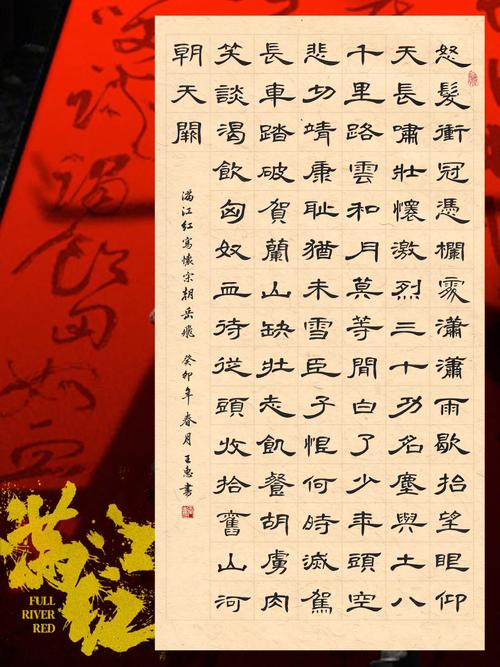 怒髮衝冠憑欄處瀟瀟雨歇抬望眼仰
天長嘯壯懷激烈三十功名塵與土八
千里路雲和月莫等閒白了少年頭空
悲切靖康恥猶未雪臣子恨何時滅駕
長車踏破賀蘭山缺壯志飢餐胡虜肉
笑談渴飲匈奴血待從頭收拾舊山河
朝天闕
滿江紅寫懷宋朝岳飛 癸卯年春月王惠書
满江红
FULL
RIVER
RED